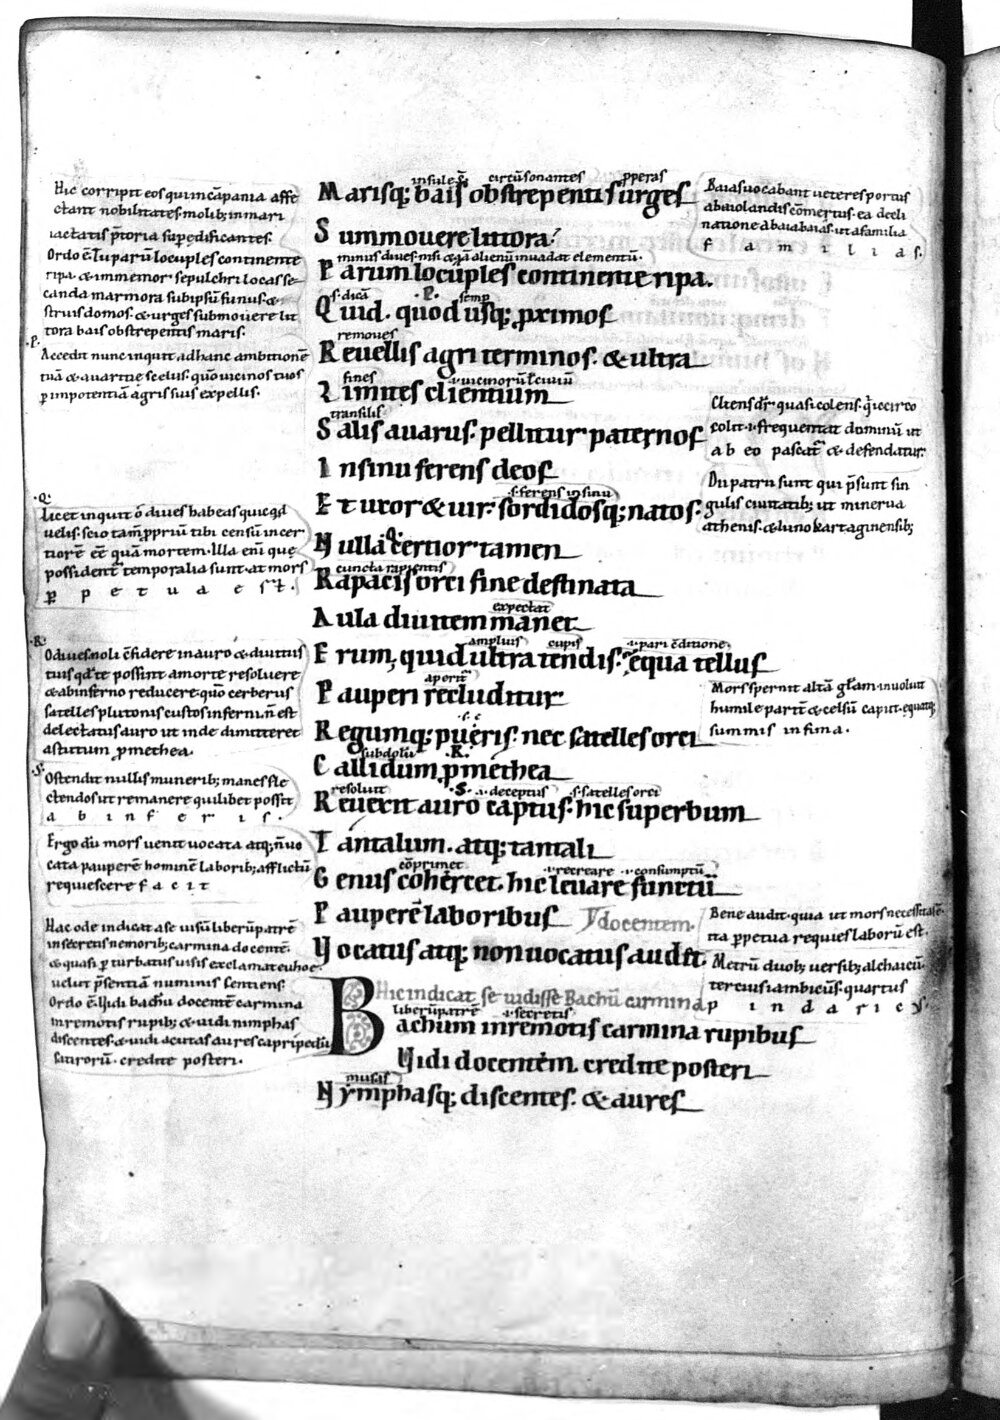 Hic corripit eos qui in cãpania affe
ctant nobilitates molib; in mari
iactatis p̃toria sup̱edificantes.
Ordo ẽ. Tu parũ locuples continente
ripa. & immemor sepulchri locas se
canda marmora sub ipsũ funus. &
struis domos. & urges submouere lit
tora bais obstrepentis maris.
.P.
Accedit nunc inquit ad hanc ambitionẽ
tuã & auaritie scelus. quo uicinos tuos
p̱ impotentiã agris suis expellis.
.Q.
Licet inquit o diues habeas quicqd
uelis. scio tam̃ ppriũ tibi censũ incer
tiorẽ eẽ quã mortem. Illa eni que
possident̃ temporalia sunt. at mors
p̱petua est.
.R.
O diues noli cfidere in auro & diuitiis
tuis qd te possint a morte resoluere
& ab inferno reducere. quo cerberus
satelles plutonis custos inferni. ñ est
delectatus auro ut inde dimitteret
astutum p̱methea.
.S.
Ostendit nullis munerib; manes fle
ctendos ut remanere quilibet possit
ab inferis.
Ergo dũ mors uenit uocata atq; ñ uo
cata pauperẽ hominẽ laborib; afflictũ
requiescere facit
Hac ode indicat a se uisũ liberũ patrẽ
in secretis nemorib; carmina docentẽ.
& quasi p̱turbatus uisis exclamat euhoe.
uelut p̃sentiã numinis sentiens.
Ordo ẽ. Uidi bachũ docentẽ carmina
in remotis rupib; & uidi nimphas
discentes. & uidi acutas aures capripedũ
satirorũ. credite posteri.
insule circũsonantes pperas
Marisq; bais obstrepentis urges
Summouere littora.
minus diues. nisi & qa alienũ inuadat elementũ.
Parum locuples continente ripa.
s. dicã .P. semp
Quid. quod usq; proximos
remoues
Reuellis agri terminos. & ultra
fines
Limites clientium
transilis
Salis auarus. pellitur paternos
In sinu ferens deos
.s. ferens in sinu
Et uxor & uir. sordidosq; natos.
.Q.
Nulla certior tamen
cuncta rapientis
Rapacis orci fine destinata
expectat
Aula diuitem manet
amplius cupis .i. pari cditione
Erum, quid ultra tendis. equa tellus
aperit̃
Pauperi recluditur
Regumq; pueris. nec satelles orci
subdolũ .R.
Callidum p̱methea
resoluit .S. .i. deceptus .s. satelles orci
Reuexit auro captus. hic superbum
Tantalum. atq; tantali
cõprimet .i. recreare .i. consumptũ
Genus cohercet. hic leuare functũ
Pauperẽ laboribus docentem.
Uocatus atq; non uocatus audit.
Hic indicat se uidisse Bachũ carmina
liberũ patrẽ .i. secretis
Bachum in remotis carmina rupibus
Uidi docentem. credite posteri
musas
Nymphasq; discentes. & aures
Baias uocabant ueteres portus
a baiolandis comertiis.
natione a baia baias. ut a familia
familias.
Cliens dr̃. quasi colens. qi circo
colit .i. frequentat dominũ ut
ab eo pascat̃ & defendatur.
Dii patrii sunt qui p̃sunt sin
gulis ciuitatib; ut minerua
athenis. & iuno kartaginensib;
Mors spernit altã glam. inuoluit
humile parit̃ & celsũ caput. equatq;
summis infima.
Bene audit. quia ut mors necessitatẽ.
ita p̱petua requies laborũ est.
Metrũ duob; uersib; alchaicũ.
tercius iambicus. quartus
pindaricus.